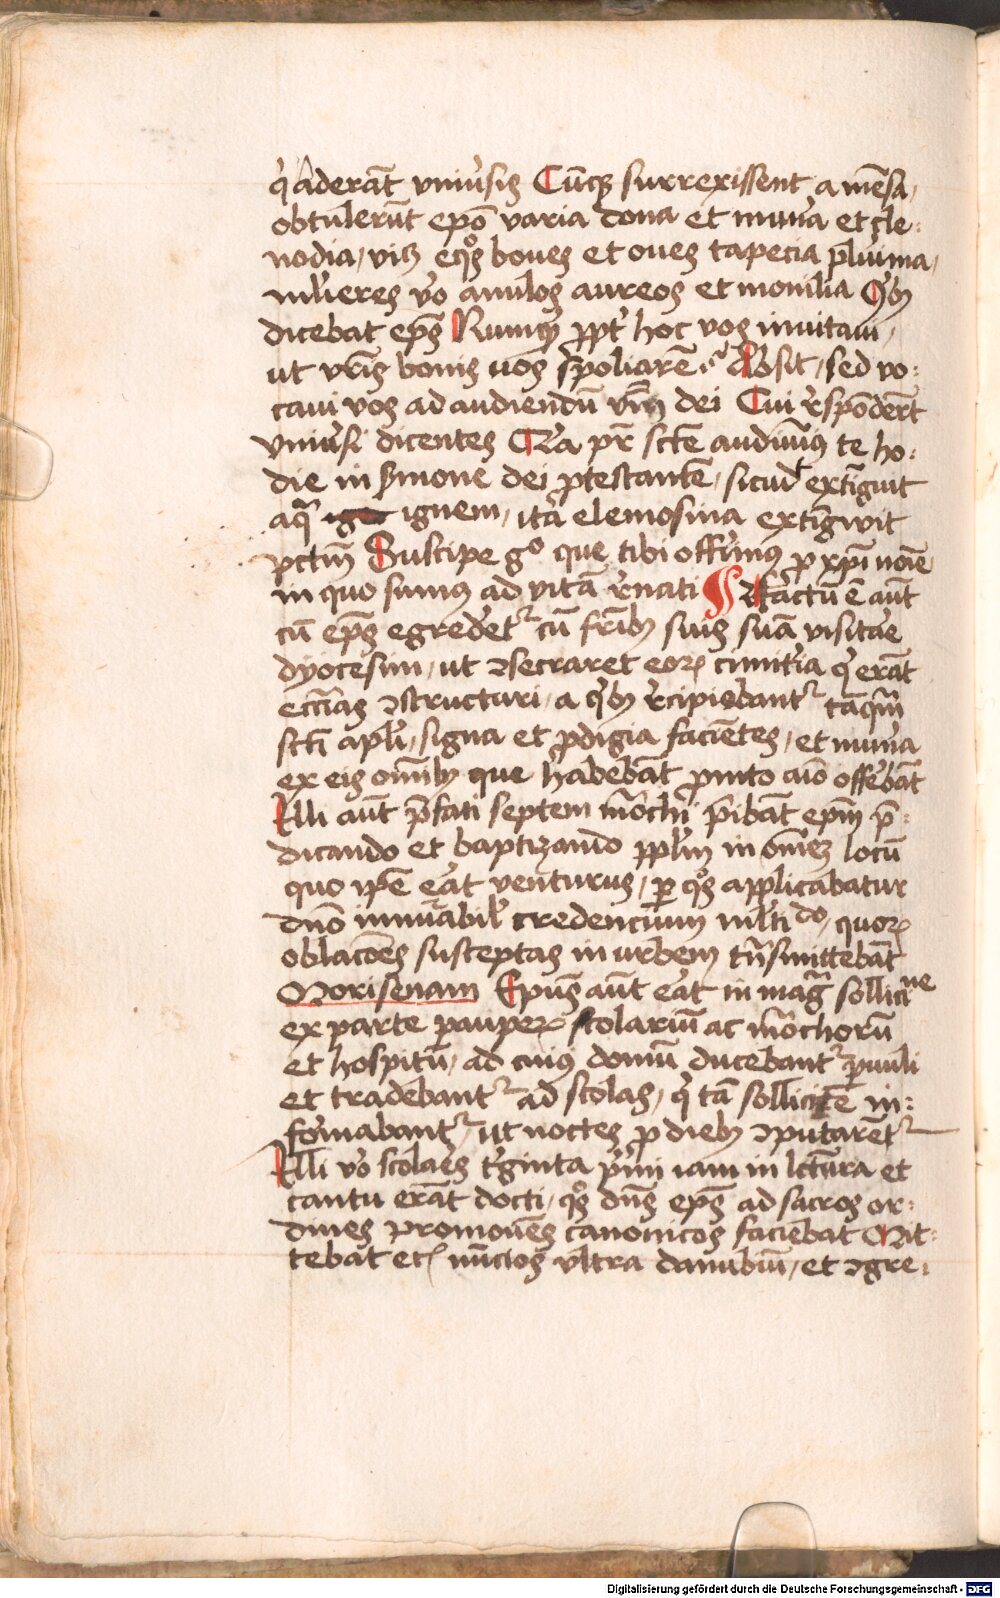 q̇ aderāt vniūsis Cūq3 surrexissent a mēsa,
obtulerūt epō varia dona et mun̄a et cle:
nodia, vi3 eqͦs boues et oues tapecia pluima,
mlieres v̄o anulos aureos et monilia Qͥb9
dicebat ep̄s Nunq͛ ppt̄ hoc vos inuitaui,
ut vr̄is bonis uos spoliarē? Absit, sed vo:
caui vos ad audiendū v̄bū dei Cui r̄spōder̄t
vniūsi dicentes Cͣra pr̄ sct̄e audiuīm9 te ho:
die in s̄mone dei ptestantē, sicud extīguit
aqͣ ignem, ita elemosina extīgwit
pctm̄ Suscipe gͦ que tibi off̄rim9 p xp̄i noīe
in quo sum9 ad vitā r̄nati ¶ Factū ē aūt
cū ep̄s egredetᷣ cū fr̄ib9 suis suā visitāe
dyocesim, ut ꝯsecraret eoꝝ cimit̄ia qͥ erāt
eccīas ꝯstructuri, a qͥb9 r̄cipiebantᷣ tāqͣm
sct̄i apl̄i, signa et pdigia faciētes, et mun̄a
ex eis om̄ib9 que habebāt pmto aīo offebāt
Illi aūt p̄fati septem mōchi p̄ibāt epm̄ p̄:
dicando et baptizando pplm̄ in om̄e3 locū
quo ip̄e eāt venturus, per qͦs applicabatur
dn̄o innūabil̄ credencium ml̄tido, quoꝝ
oblacōes susceptas in urbem tn̄smittebāt
Morisenam Ep̄us aūt eāt in magͣ sollicine
ex parte paupeꝝ scolariū ac mōchorū
et hospitū, ad cui9 domū ducebantᷣ puuli
et tradebantᷣ ad scolas, qͥ tā sollicite in:
formabantᷣ, ut noctes p dieb9 ꝯputarētᷣ
Illi v̄o scolaēs tͥginta pͥmi iam in lctūra et
cantu erāt docti, qͦs dn̄s ep̄s ad sacros or:
dines promouēs canonicos faciebāt Mit:
tebat etꝫ nūcios vltra danubiū, et ꝯgre:
Digitalisierung gefördert durch die Deutsche Forschungsgemeinschaft - DFG